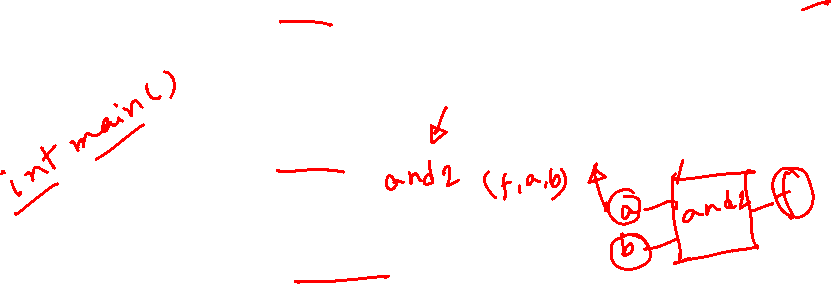 int main()
and2 (f,a,b)
a
and2
f
b